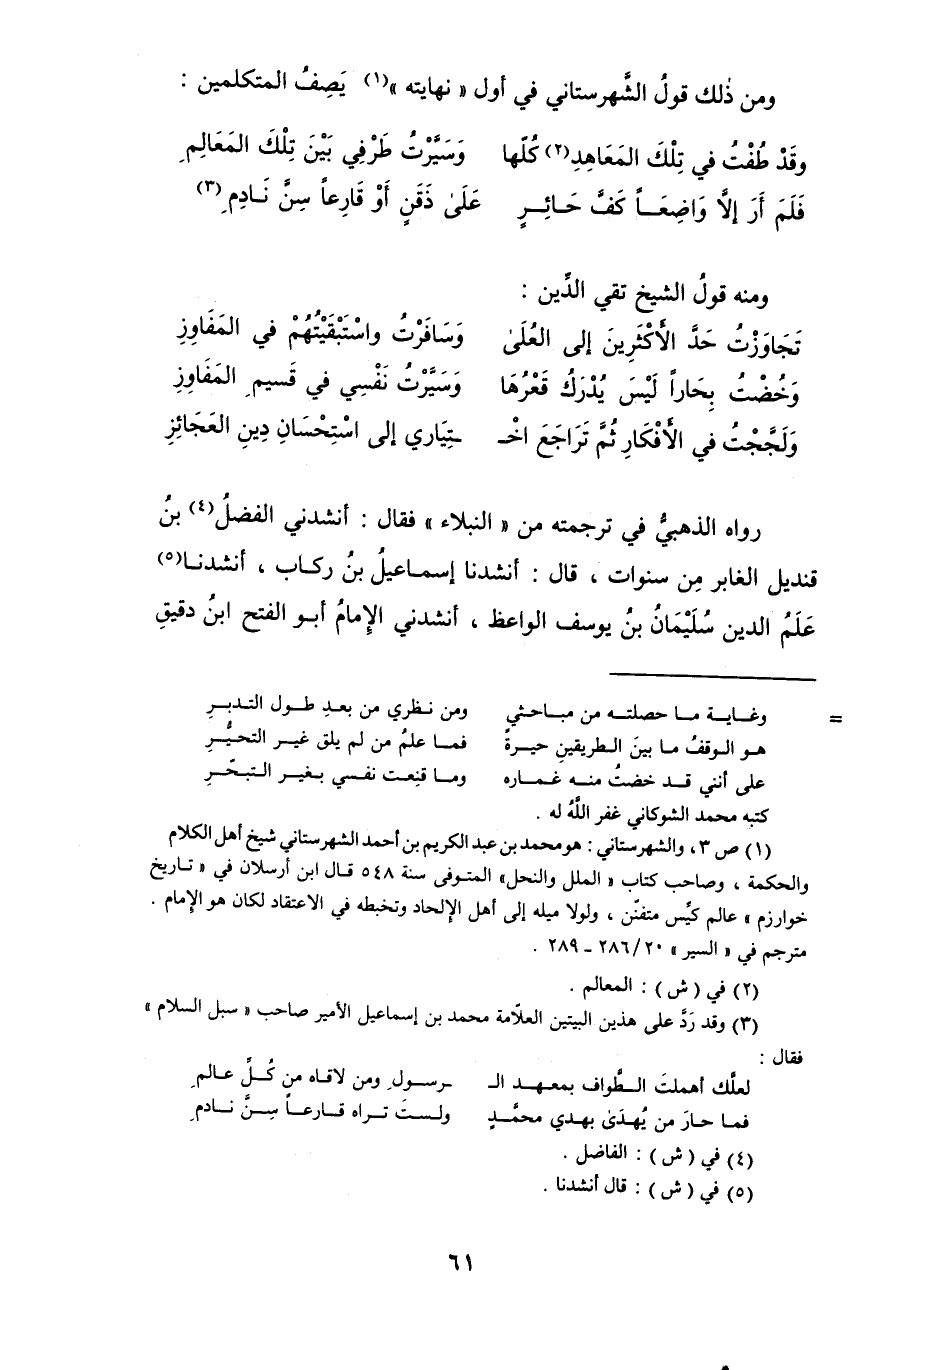 ومن ذٰلك قولُ الشَّهرستاني في أول « نهايته »(١) يَصِفُ المتكلمين :
وقَدْ طُفْتُ في تِلْكَ المَعَاهِدِ(٢) كُلِّها وَسَيَّرْتُ طَرْفِي بَيْنَ تِلْكَ المَعَالِمِ
فَلَمَ أَرَ إلَّا وَاضِعَاً كَفَّ حَائِرٍ عَلَىٰ ذَقَنٍ أَوْ قَارِعاً سِنَّ نَادِمِ(٣)
ومنه قولُ الشيخ تقي الدِّين :
تَجَاوَزْتُ حَدَّ الأَكْثَرِينَ إلى العُلَىٰ وَسَافَرْتُ واسْتَبْقَيْتُهُمْ في المَفَاوِزِ
وَخُضْتُ بِحَاراً لَيْسَ يُدْرَكُ قَعْرُهَا وَسَيَّرْتُ نَفْسِي في قَسيمِ المَفَاوِزِ
وَلَجَّجْتُ في الأَفْكَارِ ثُمَّ تَرَاجَعَ اخْـ ـتِيَاري إلى اسْتِحْسَانِ دِينِ العَجَائِزِ
رواه الذهبيُّ في ترجمته من « النبلاء » فقال : أنشدني الفضلُ(٤) بنُ
قنديل الغابر مِن سنوات ، قال : أنشدنا إسماعيلُ بنُ ركاب ، أنشدنا(٥)
عَلَمُ الدين سُلَيْمَانُ بنُ يوسف الواعظ ، أنشدني الإِمامُ أبو الفتح ابنُ دقيقِ
= وغاية ما حصلته من مباحثي ومن نظري من بعدِ طول التدبرِ
هو الوقفُ ما بينَ الطريقينِ حيرةً فما علمُ من لم يلق غير التحيُّرِ
على أنني قد خضتُ منه غماره وما قنِعت نفسي بغير التبحّرِ
كتبه محمد الشوكاني غفر اللَّهُ له .
(١) ص ٣، والشهرستاني : هو محمد بن عبد الكريم بن أحمد الشهرستاني شيخ أهل الكلام
والحكمة ، وصاحب كتاب « الملل والنحل» المتوفى سنة ٥٤٨ قال ابن أرسلان في « تاريخ
خوارزم » عالم كيِّس متفنّن ، ولولا ميله إلى أهل الإلحاد وتخبطه في الاعتقاد لكان هو الإمام .
مترجم في « السير » ٢٨٦/٢٠ - ٢٨٩ .
(٢) في ( ش ) : المعالم .
(٣) وقد رَدَّ على هذين البيتين العلاّمة محمد بن إسماعيل الأمير صاحب « سبل السلام »
فقال :
لعلَّك أهملتَ الطَّواف بمعهد الـ ـرسولِ ومن لاقاه من كُلِّ عالمِ
فما حارَ من يُهدَىٰ بهدي محمَّدٍ ولستَ تراه قارعاً سِنَّ نادمِ
(٤) في ( ش ) : الفاضل .
(٥) في ( ش ) : قال أنشدنا .
٦١